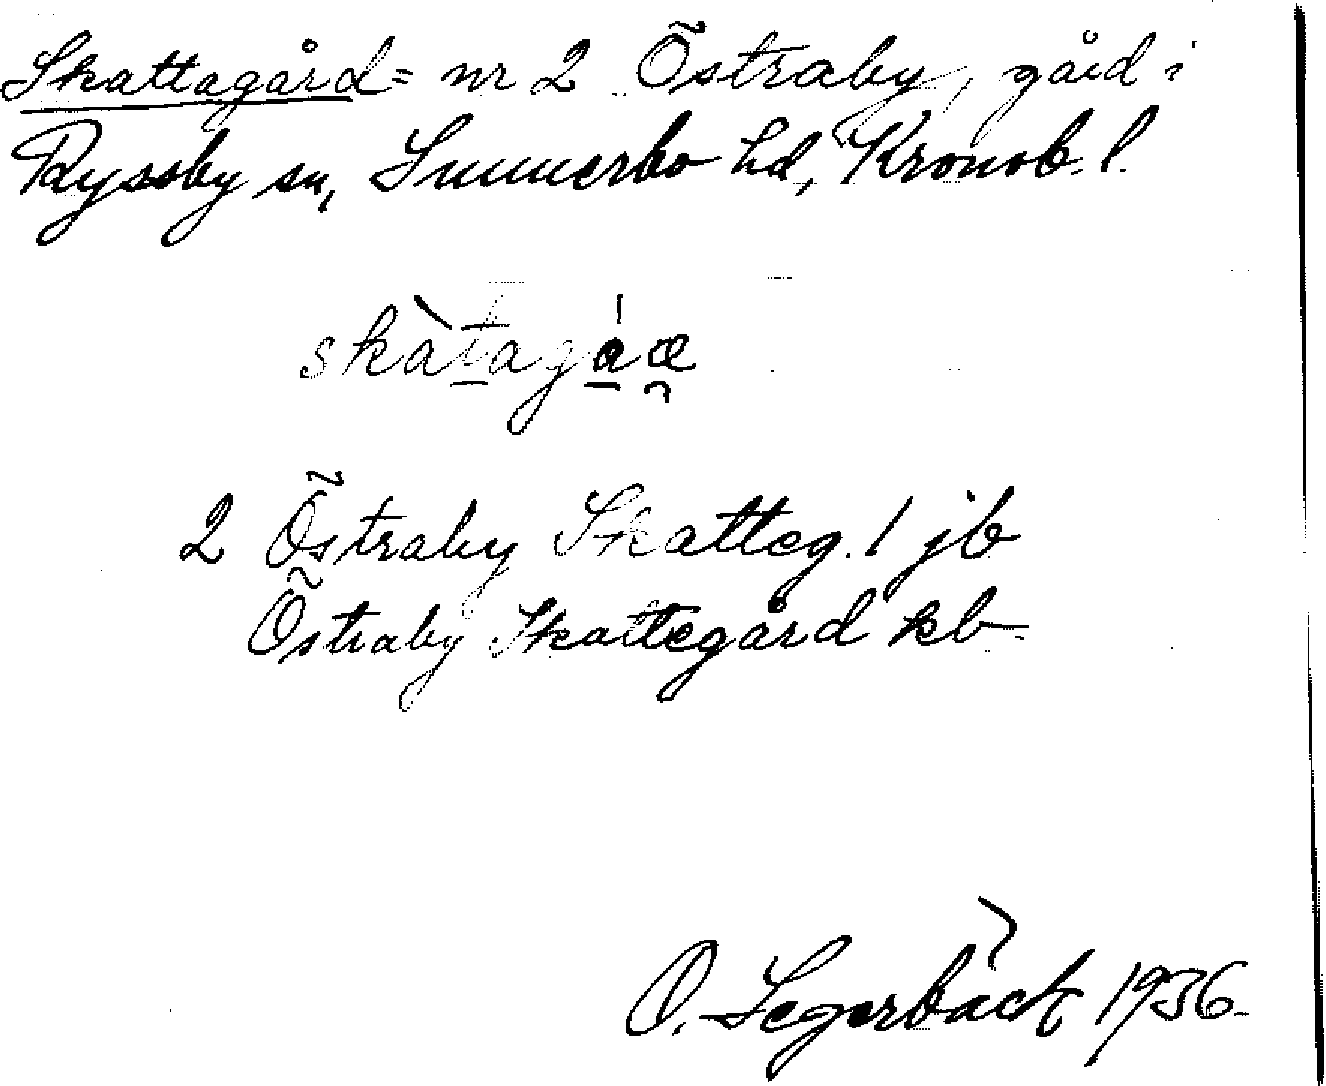 Skattagård = nr 2 Östraby, gård i
Ryssby sn, Sunnerbo hd, Kronob. l.
skàtagáæ
2 Östraby Skatteg. 1 jb
Östraby Skattegård kb
O. Segerbäck 1936